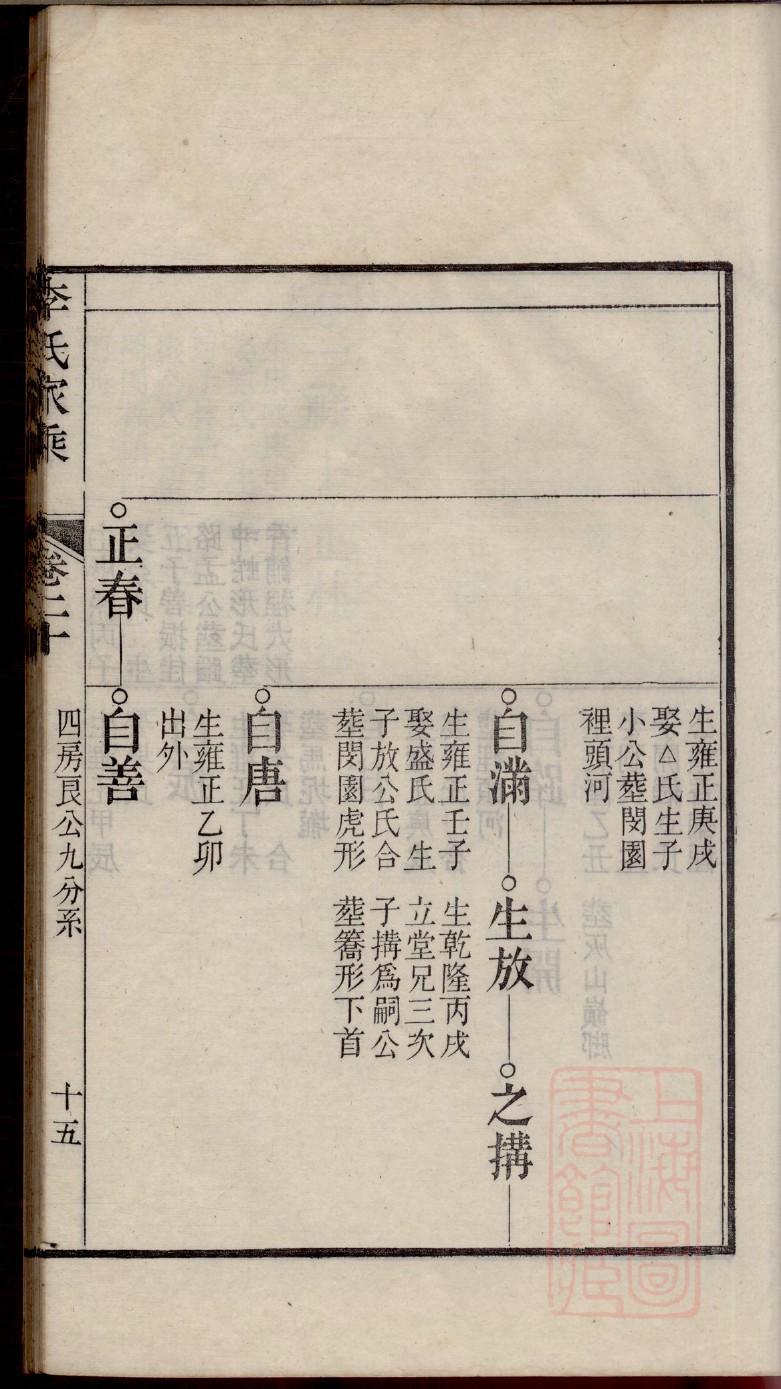 生雍正庚戌
娶△氏生子
小公塟閔園
裡頭河
自滿
生雍正壬子
娶盛氏 生
子放公氏合
塟閔園虎形
生放
生乾隆丙戌
立堂兄三次
子搆爲嗣公
塟簥形下首
之搆
自唐
生雍正乙卯
出外
正春
自善
李氏家乘
卷二十
四房艮公九分系
十五
上海圖
書館藏